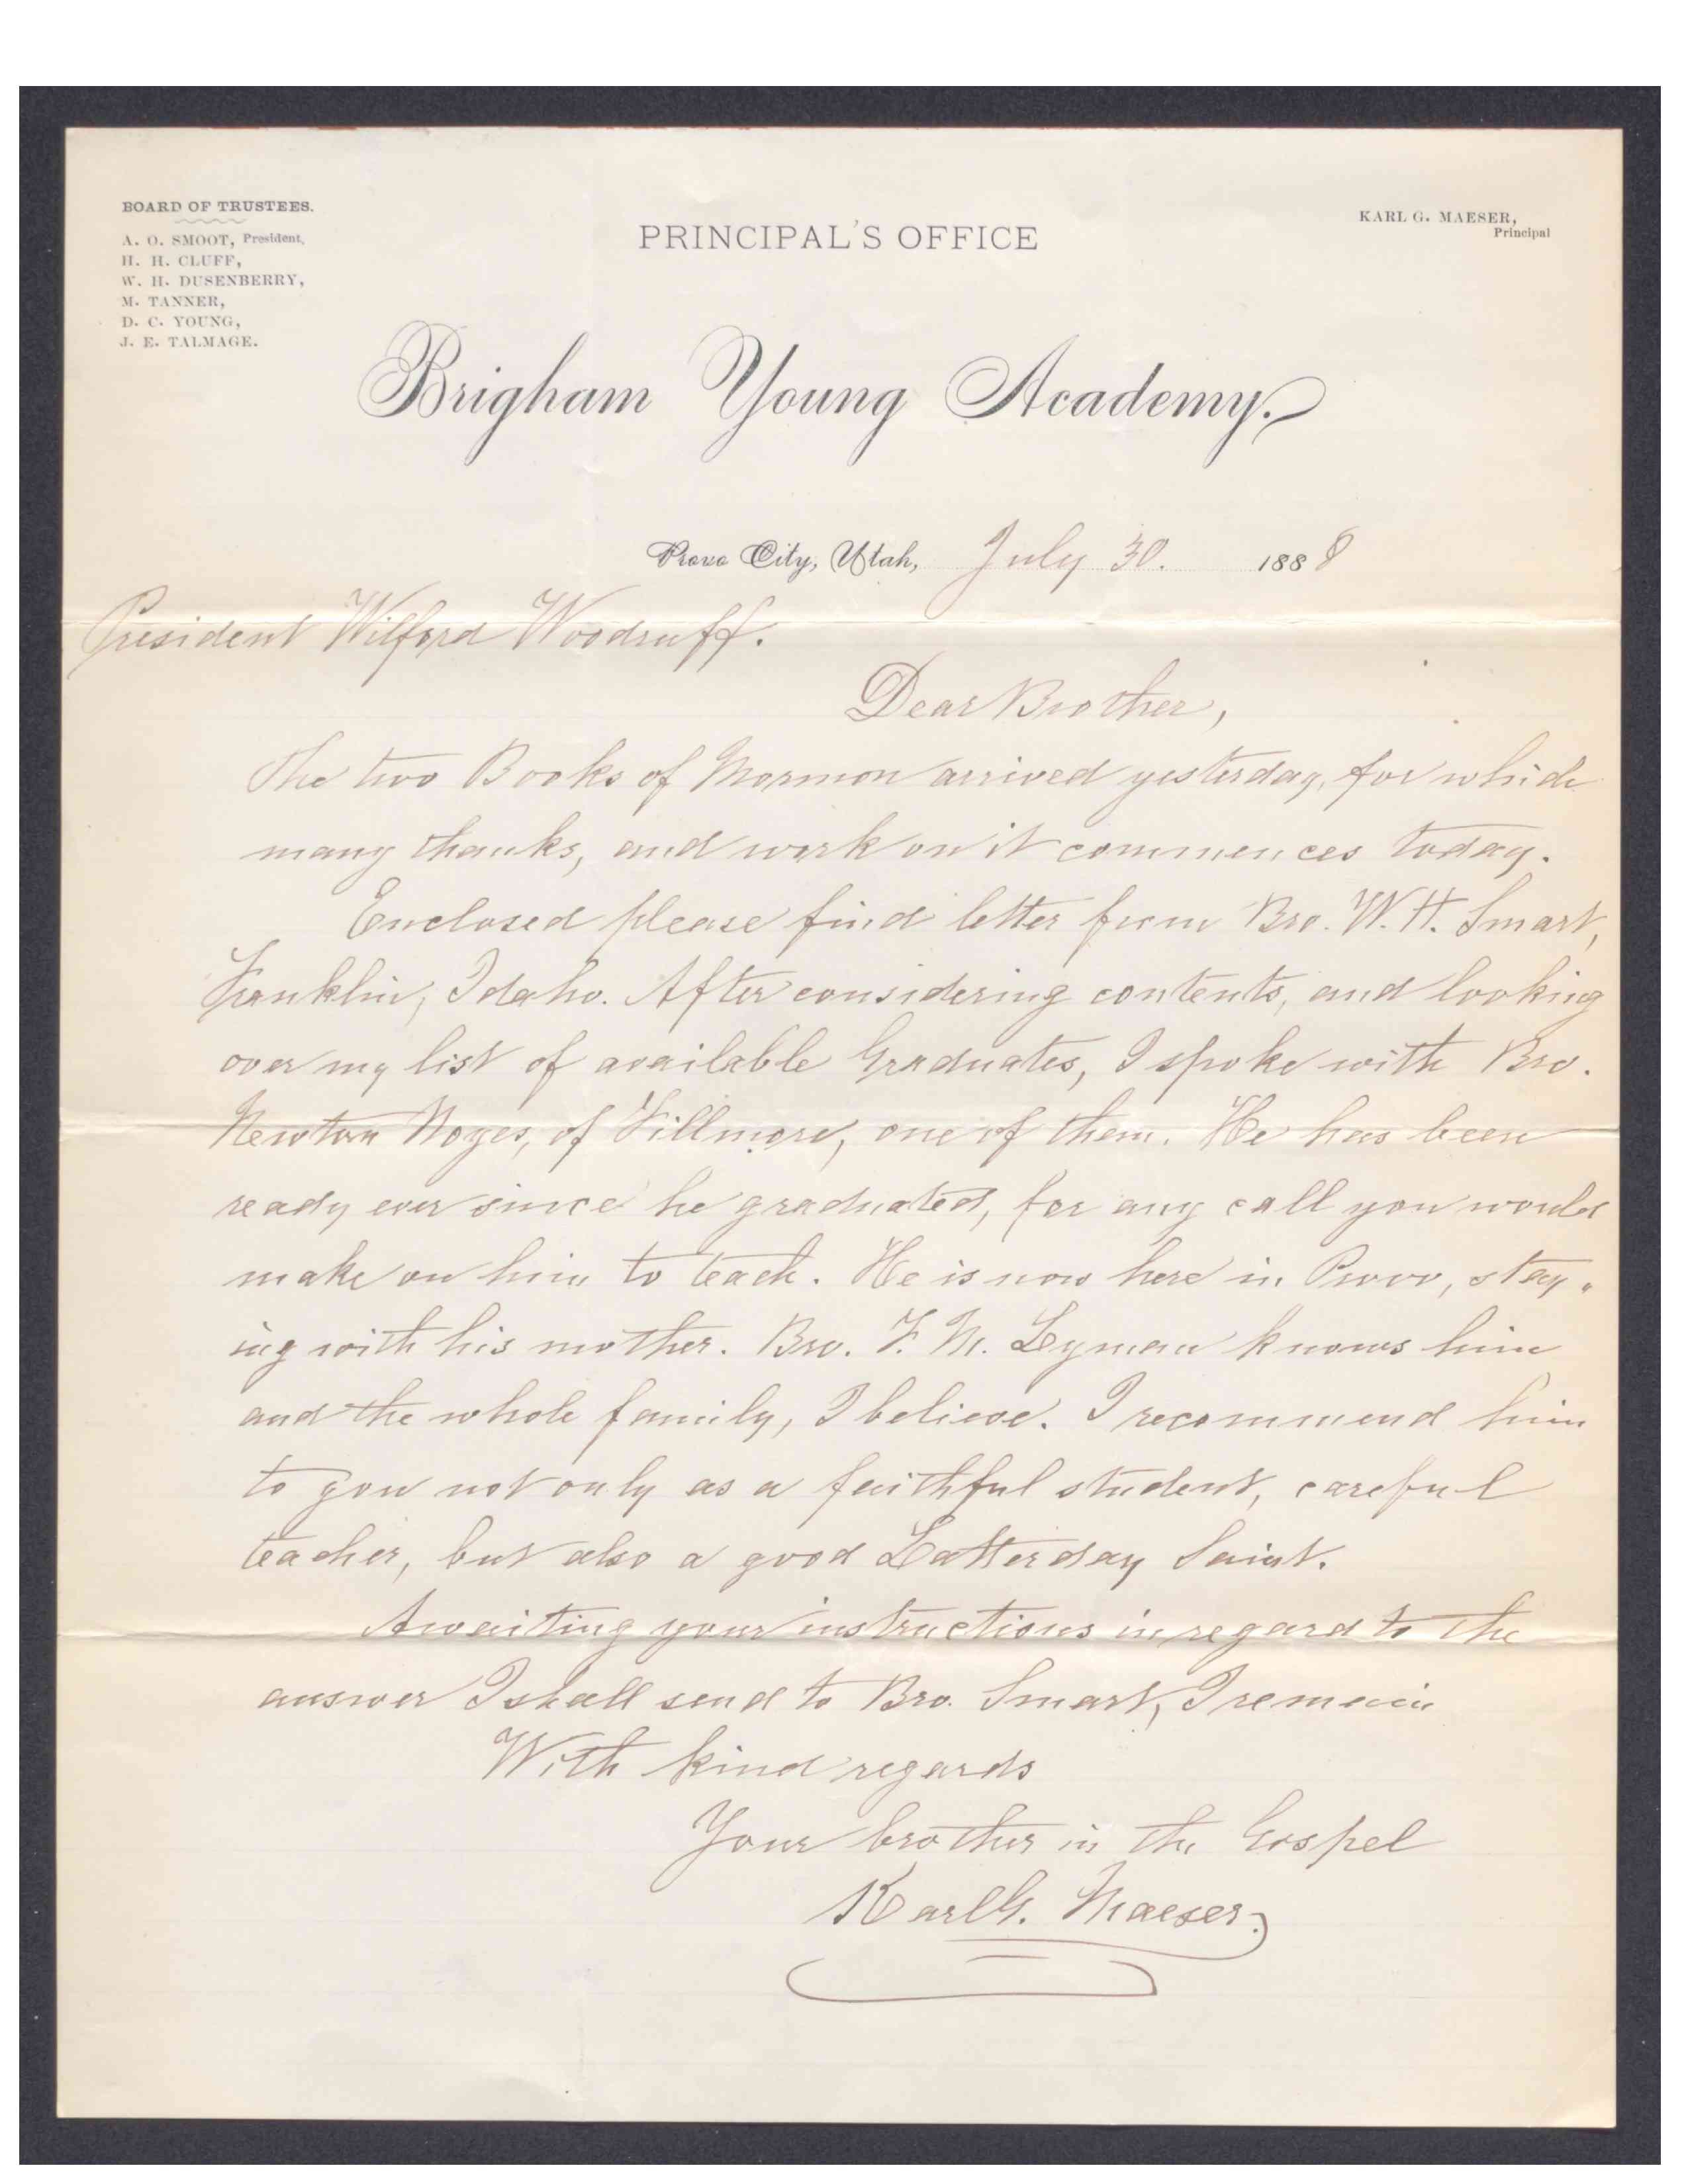 BOARD OF TRUSTEES.
A. O. SMOOT, President,
H. H. CLUFF,
W. H. DUSENBERRY,
M. TANNER,
D. C. YOUNG,
J. E. TALMAGE.
PRINCIPAL'S OFFICE
KARL G. MAESER,
Principal
Brigham Young Academy.
Provo City, Utah, July 30. 1888
President Wilford Woodruff.
Dear Brother,
The two Books of Mormon arrived yesterday, for which
many thanks, and work on it commences today.
Enclosed please find letter from Bro. W. H. Smart,
Franklin, Idaho. After considering contents, and looking
over my list of available Graduates, I spoke with Bro.
Newton Noyes, of Fillmore, one of them. He has been
ready ever since he graduated, for any call you would
make on him to teach. He is now here in Provo, stay-
ing with his mother. Bro. F. M. Lyman knows him
and the whole family, I believe. I recommend him
to you not only as a faithful student, careful
teacher, but also a good Latterday Saint.
Awaiting your instructions in regard to the
answer I shall send to Bro. Smart, I remain
With kind regards
Your brother in the Gospel
Karl G. Maeser.